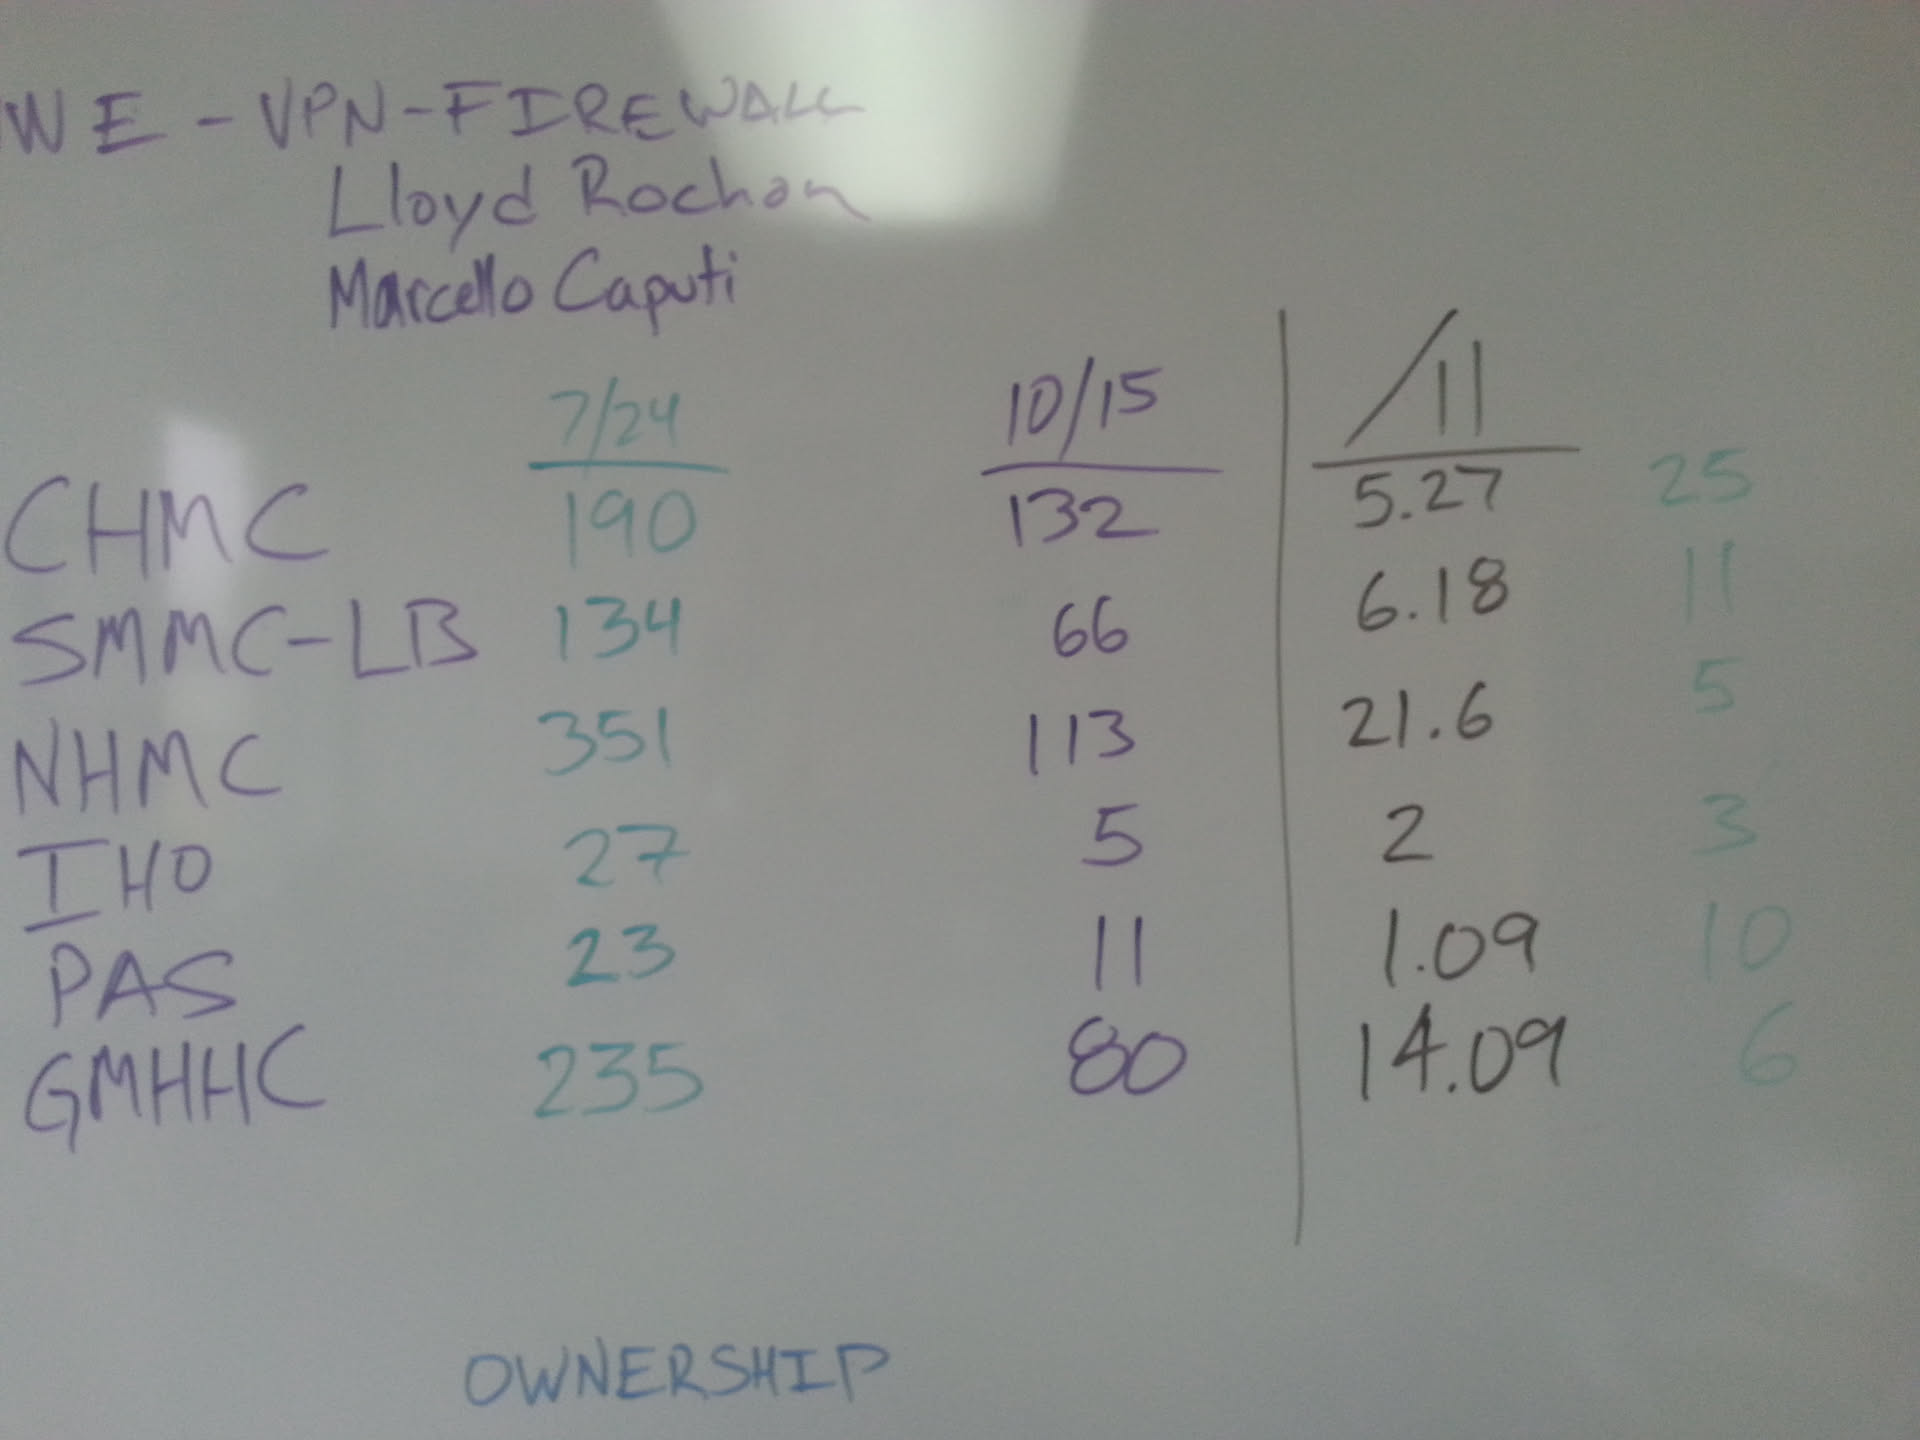 WE - VPN - FIREWALL
Lloyd Rochon
Marcello Caputi
7/24 10/15 /11
CHMC 190 132 5.27 25
SMMC-LB 134 66 6.18 11
NHMC 351 113 21.6 5
IHO 27 5 2 3
PAS 23 11 1.09 10
GMHHC 235 80 14.09 6
OWNERSHIP